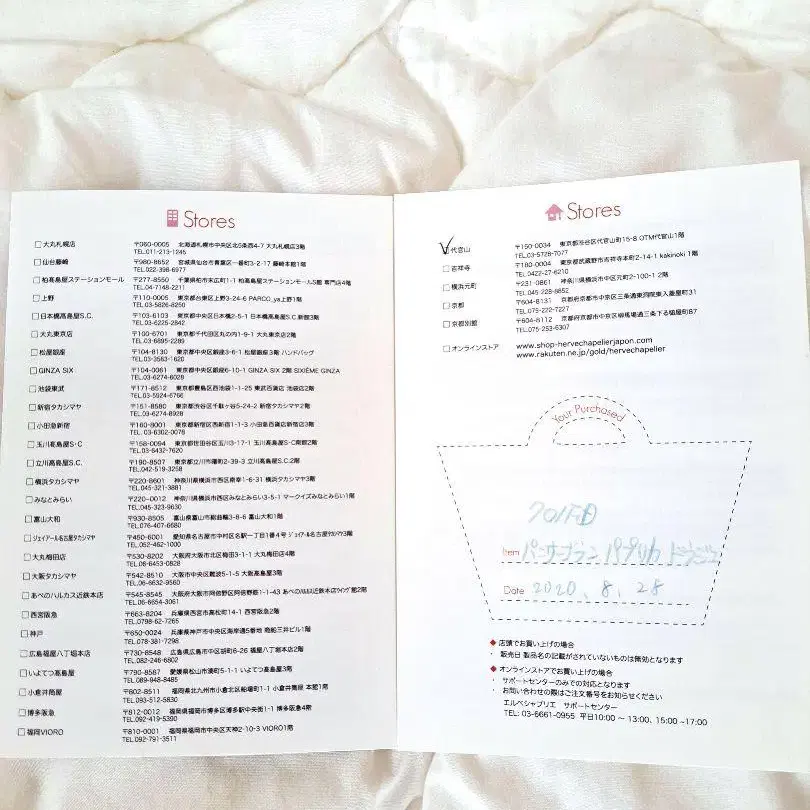 Stores
大丸札幌店 〒060-0005 北海道札幌市中央区北5条西4-7 大丸札幌店3階
TEL.011-213-1245
仙台藤崎 〒980-8652 宮城県仙台市青葉区一番町3-2-17 藤崎本館1階
TEL.022-398-6977
柏髙島屋ステーションモール 〒277-8550 千葉県柏市末広町1-1 柏髙島屋ステーションモールS館 専門店4階
TEL.04-7148-2211
上野 〒110-0005 東京都台東区上野3-24-6 PARCO_ya上野1階
TEL.03-5826-8250
日本橋髙島屋S.C. 〒103-6103 東京都中央区日本橋2-5-1 日本橋髙島屋S.C.新館3階
TEL.03-6225-2842
大丸東京店 〒100-6701 東京都千代田区丸の内1-9-1 大丸東京店2階
TEL.03-6895-2289
松屋銀座 〒104-8130 東京都中央区銀座3-6-1 松屋銀座3階 ハンドバッグ
TEL.03-3563-1620
GINZA SIX 〒104-0061 東京都中央区銀座6-10-1 GINZA SIX 2階 SIXIÈME GINZA
TEL.03-6274-6028
池袋東武 〒171-8512 東京都豊島区西池袋1-1-25 東武百貨店 池袋店2階
TEL.03-5924-6766
新宿タカシマヤ 〒151-8580 東京都渋谷区千駄ヶ谷5-24-2 新宿タカシマヤ2階
TEL.03-6274-8928
小田急新宿 〒160-8001 東京都新宿区西新宿1-1-3 小田急百貨店新宿店3階
TEL.03-6302-0078
玉川髙島屋S・C 〒158-0094 東京都世田谷区玉川3-17-1 玉川髙島屋S・C南館2階
TEL.03-6432-7620
立川髙島屋S.C. 〒190-8507 東京都立川市曙町2-39-3 立川髙島屋S.C.2階
TEL.042-519-3258
横浜タカシマヤ 〒220-8601 神奈川県横浜市西区南幸1-6-31 横浜タカシマヤ3階
TEL.045-321-3881
みなとみらい 〒220-0012 神奈川県横浜市西区みなとみらい3-5-1 マークイズみなとみらい1階
TEL.045-323-9630
富山大和 〒930-8505 富山県富山市総曲輪3-8-6 富山大和1階
TEL.076-407-6680
ジェイアール名古屋タカシマヤ 〒450-6001 愛知県名古屋市中村区名駅一丁目1番4号 ジェイアール名古屋タカシマヤ3階
TEL.052-462-1000
大丸梅田店 〒530-8202 大阪府大阪市北区梅田3-1-1 大丸梅田店4階
TEL.06-6453-0828
大阪タカシマヤ 〒542-8510 大阪府大阪市中央区難波5-1-5 大阪髙島屋3階
TEL.06-6632-9560
あべのハルカス近鉄本店 〒545-8545 大阪府大阪市阿倍野区阿倍野筋1-1-43 あべのハルカス近鉄本店ウイング館2階
TEL.06-6654-3061
西宮阪急 〒663-8204 兵庫県西宮市高松町14-1 西宮阪急2階
TEL.0798-62-7265
神戸 〒650-0024 兵庫県神戸市中央区海岸通5番地 商船三井ビル1階
TEL.078-381-7298
広島福屋八丁堀本店 〒730-8548 広島県広島市中区胡町6-26 福屋八丁堀本店2階
TEL.082-246-6802
いよてつ髙島屋 〒790-8587 愛媛県松山市湊町5-1-1 いよてつ髙島屋3階
TEL.089-948-8485
小倉井筒屋 〒802-8511 福岡県北九州市小倉北区船場町1-1 小倉井筒屋 本館1階
TEL.093-512-5830
博多阪急 〒812-0012 福岡県福岡市博多区博多駅中央街1-1 博多阪急4階
TEL.092-419-5390
福岡VIORO 〒810-0001 福岡県福岡市中央区天神2-10-3 VIORO1階
TEL.092-791-3511
Stores
代官山 〒150-0034 東京都渋谷区代官山町15-8 OTM代官山1階
TEL.03-5728-7077
吉祥寺 〒180-0004 東京都武蔵野市吉祥寺本町2-14-1 kakinoki 1階
TEL.0422-27-6210
横浜元町 〒231-0861 神奈川県横浜市中区元町2-100-1 2階
TEL.045-228-8652
京都 〒604-8131 京都府京都市中京区三条通東洞院東入菱屋町31
TEL.075-222-7227
京都別館 〒604-8112 京都府京都市中京区柳馬場通三条下る槌屋町87
TEL.075-253-6307
オンラインストア www.shop-hervechapelierjapon.com
www.rakuten.ne.jp/gold/hervechapelier
Your Purchased
701FD
Item パーサーブラン パプリカ
Date 2020. 8. 28
◆ 店頭でお買い上げの場合
・ 販売日 製品名の記載がされていないものは無効となります
◆ オンラインストアでお買い上げの場合
・ サポートセンターのみでの対応となります
・ お問い合わせの際はご注文番号をお知らせください
エルベシャプリエ サポートセンター
TEL: 03-6661-0955 平日10:00 ～ 13:00、15:00 ~17:00